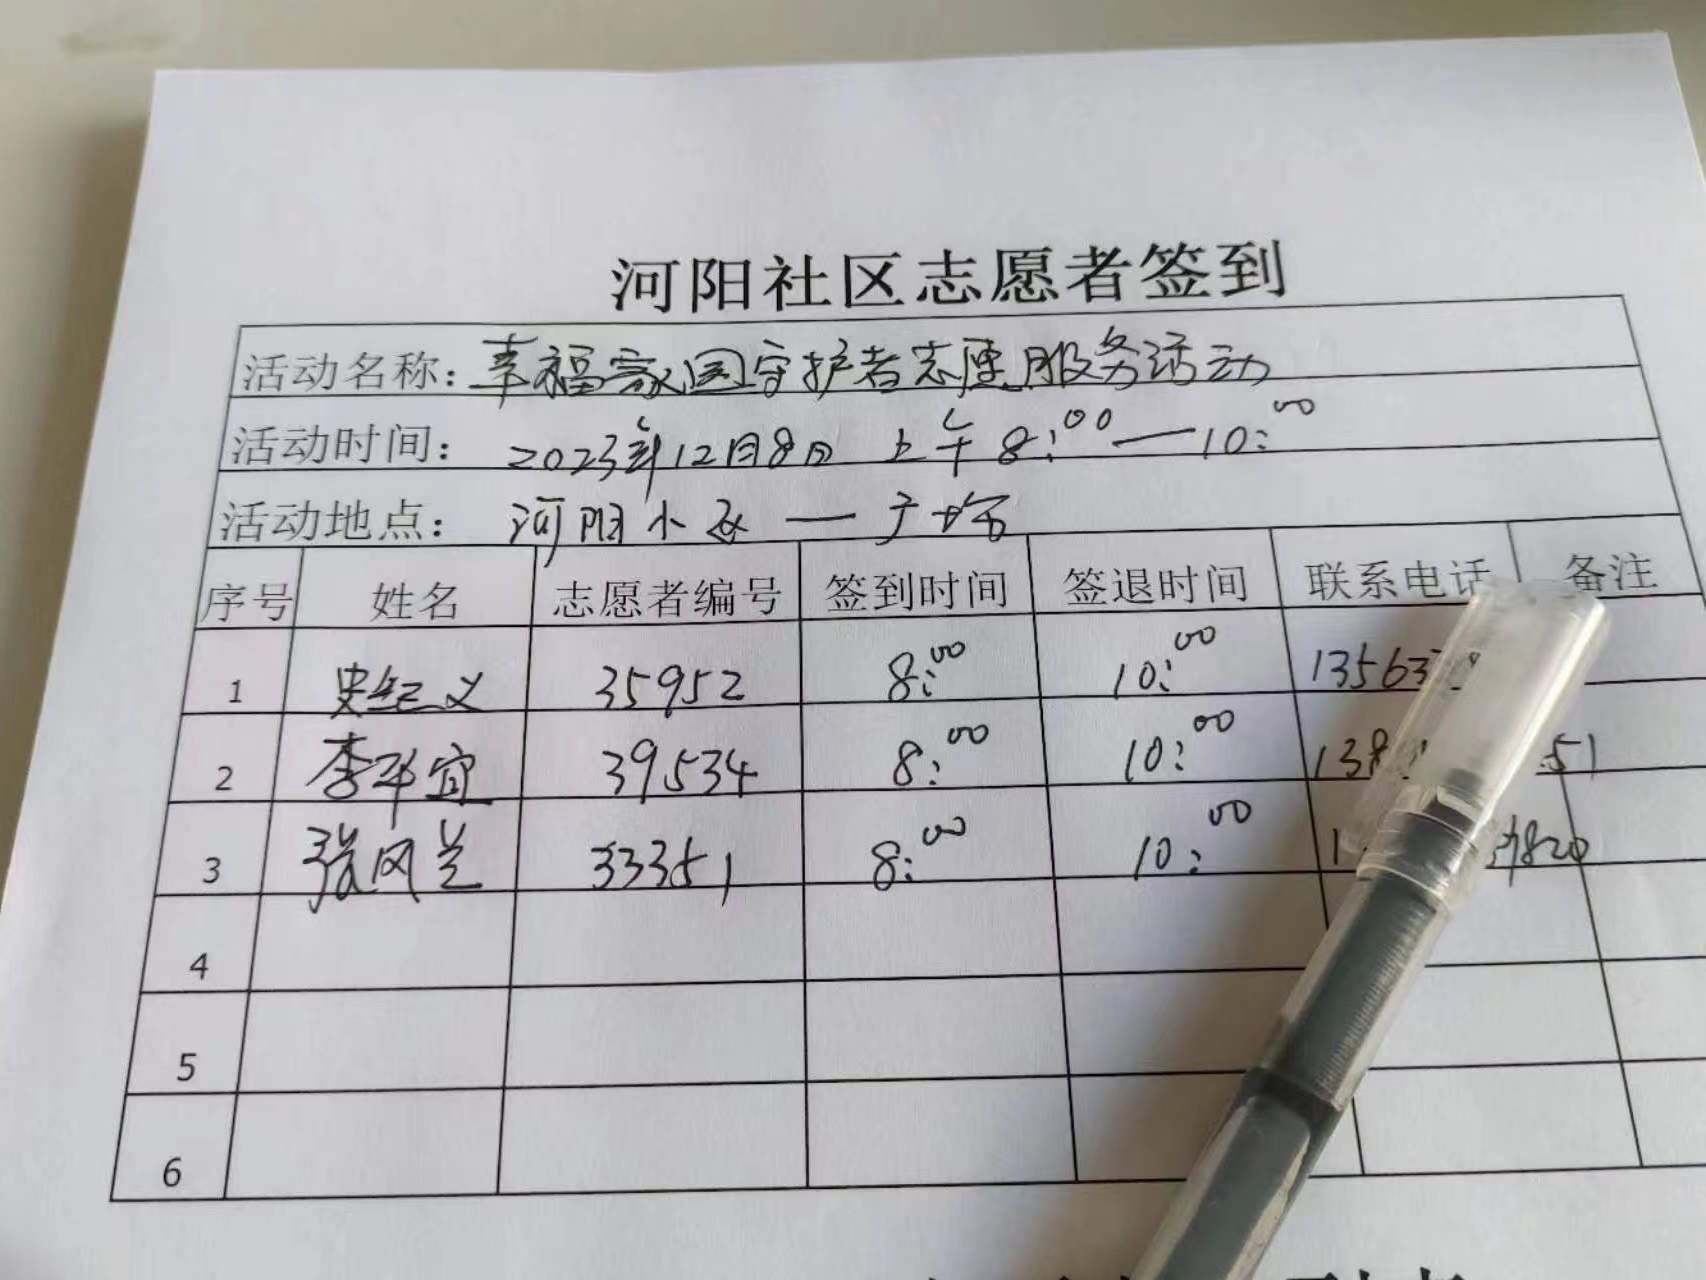 河阳社区志愿者签到
活动名称：幸福家园守护者志愿服务活动
活动时间： 2023年12月8日 上午8:00—10:00
活动地点： 河阳小区—广场
序号 姓名 志愿者编号 签到时间 签退时间 联系电话 备注
1 史纪义 35952 8:00 10:00 13563
2 李华宜 39534 8:00 10:00 138 51
3 张风兰 33351 8:00 10:00 1 9820
4
5
6